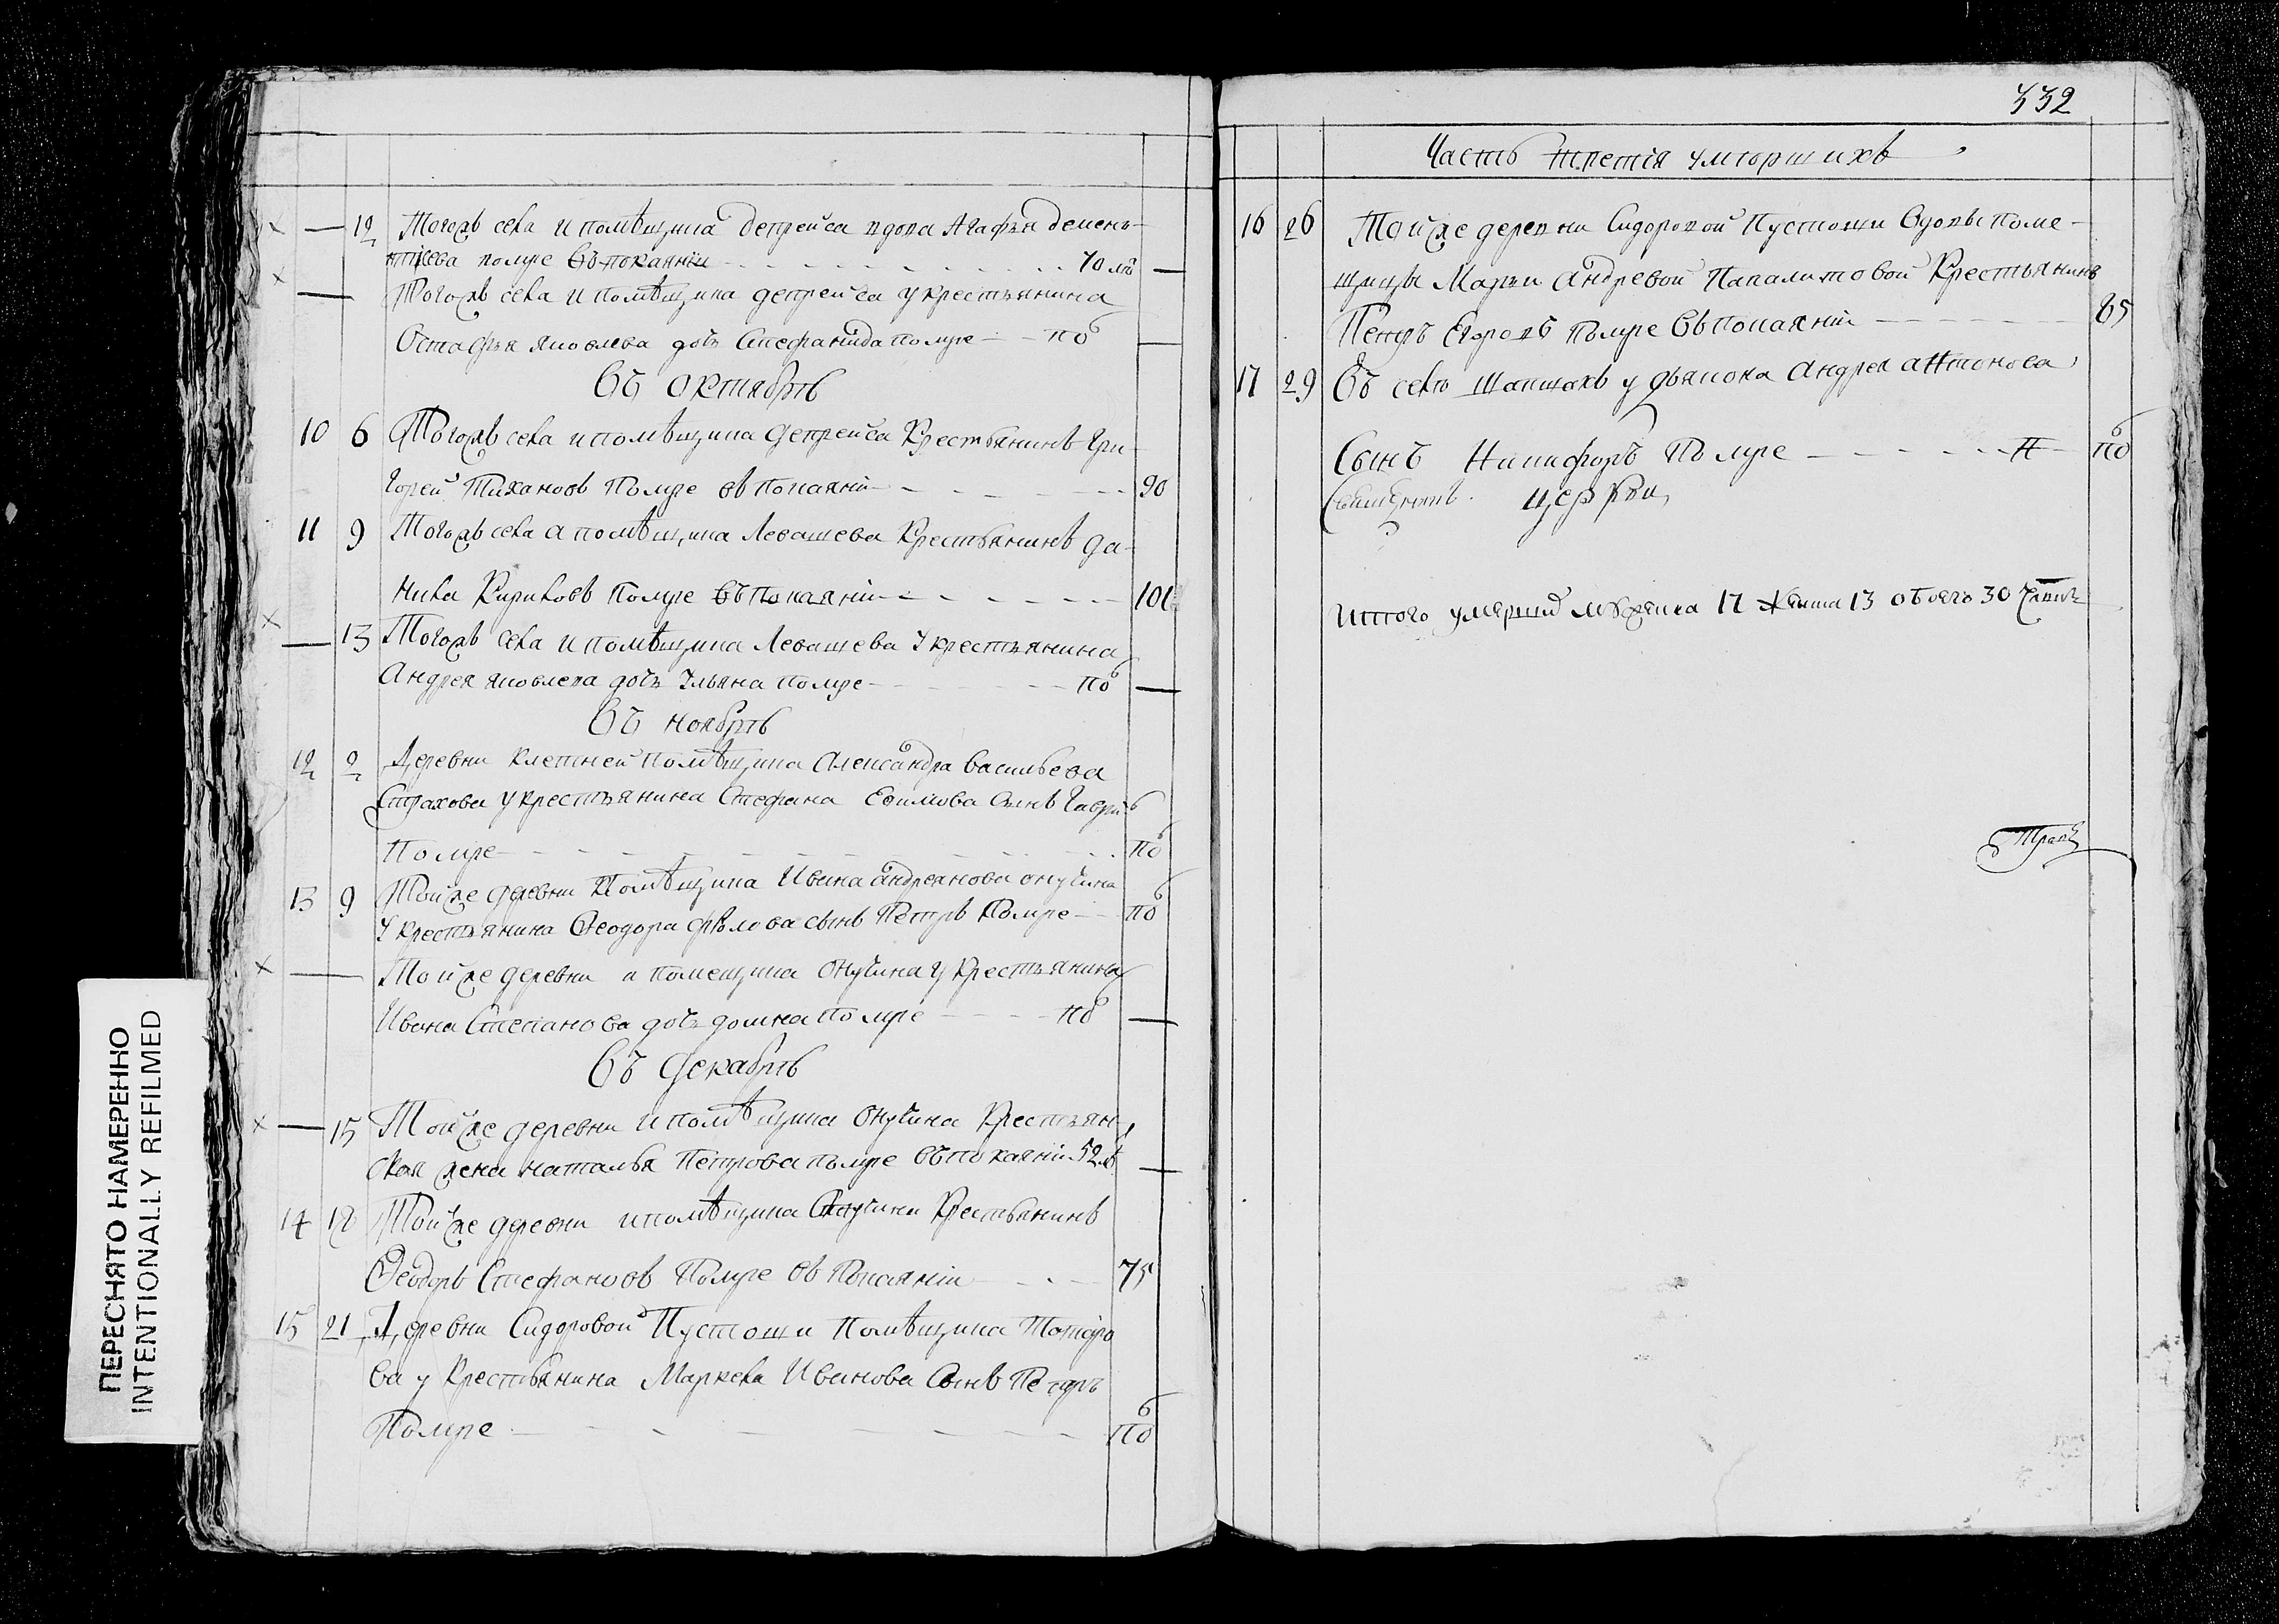 12 Тогожъ села и помѣщика депрейса вдова Агафья демень-
тиева помре въ покаянiи 70 лѣ
Тогожъ села и помѣщика депрейса у крестьянина
Остафья яковлева дочь Стефанида помре поб
Въ октябрѣ
10 6 Тогожъ села и помѣщика депрейса Крестьянинъ Гри-
горей Тиханов Помре въ покаянiи 90
11 9 Тогожъ села а помѣщика Левашева Крестьянинъ да-
нила Кириловъ Помре въ покаянiи 101
13 Тогожъ села и помѣщика Левашева у крестьянина
Андрея яковлева дочь Ульяна помре поб
Въ ноябрѣ
12 2 Деревни клетней помѣщика Александра Васильева
Страхова у крестьянина Стефана Ефимова сынъ Гаврил
Помре поб
13 9 Тойже деревни Помѣщика Ивана андреянова онучина
у крестьянина Феодора фролова сынъ Петръ Помре поб
Тойже деревни и помещика Онучина у крестьянина
Ивана Степанова дочь домна помре поб
Въ декабрѣ
15 Тойже деревни и помѣщика Онучина Крестьян-
ская жена наталья Петрова помре въ покаянiи 52 лѣ
14 18 Тойже деревни и помѣщика Онучина Крестьянинъ
Феодоръ Стефановъ Помре въ Покаянiи 75
15 21 Деревни Сидоровой Пустоши Помѣщика Татаро
ва у Крестьянина Маркела Иванова Сынъ Петръ
Помре поб
332
Часть третiя умюршихъ
16 26 Тойже деревни Сидоровой Пустоши Вдовы поме-
щицы Марьи Андревой Папалитовой Крестьянинъ
Петръ Егоровъ Помре Въ покаянiи 85
17 29 Въ селѣ шапшахъ у дьякона Андрея Антонова
Сынъ Никифоръ Помре поб
церкви
Итого умярших мужеска 17 женска 13 обоего 30
ПЕРЕСНЯТО НАМЕРЕННО
INTENTIONALLY REFILMED